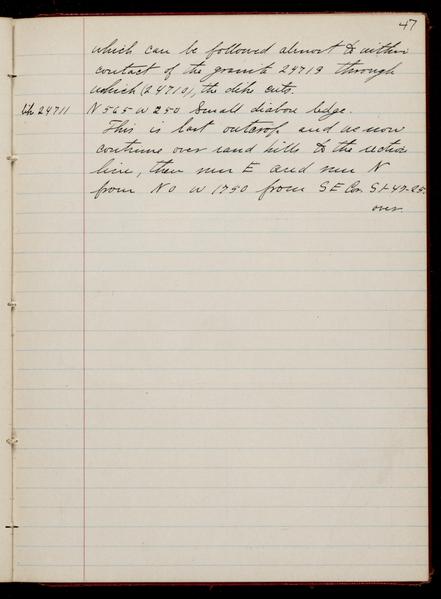 47
which can be followed almost to within
contact of the granite 24719 through
which (24710), the dike cuts.
24711 N 565 W 250 Small diabase ledge.
This is last outcrop and we now
continue over sand hills to the section
line, then run E and run N
from N 0 W 1750 from S E Cor. S
over.